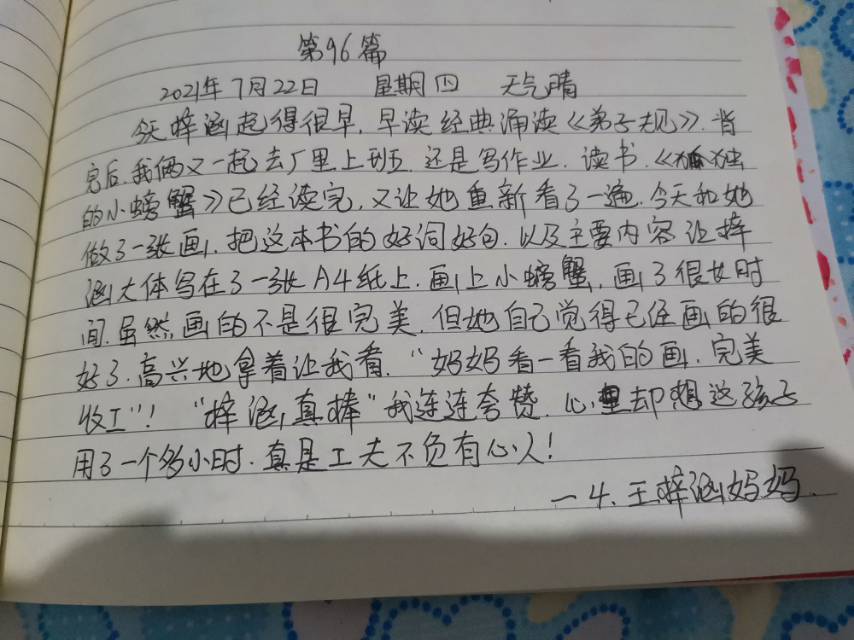 第96篇
2021年7月22日 星期四 天气晴
今天梓涵起得很早,早读经典诵读《弟子规》.背
完后.我俩又一起去厂里上班.还是写作业.读书.《独
的小螃蟹》已经读完,又让她重新看了一遍.今天和她
做了一张画,把这本书的好词好句.以及主要内容让梓
涵大体写在了一张A4纸上.画上小螃蟹,画了很长时
间.虽然画的不是很完美.但她自己觉得已经画的很
好了.高兴地拿着让我看.“妈妈看一看我的画.完美
收工”!“梓涵,真棒”我连连夸赞.心里却想这孩子
用了一个多小时.真是工夫不负有心人!
一4.王梓涵妈妈.